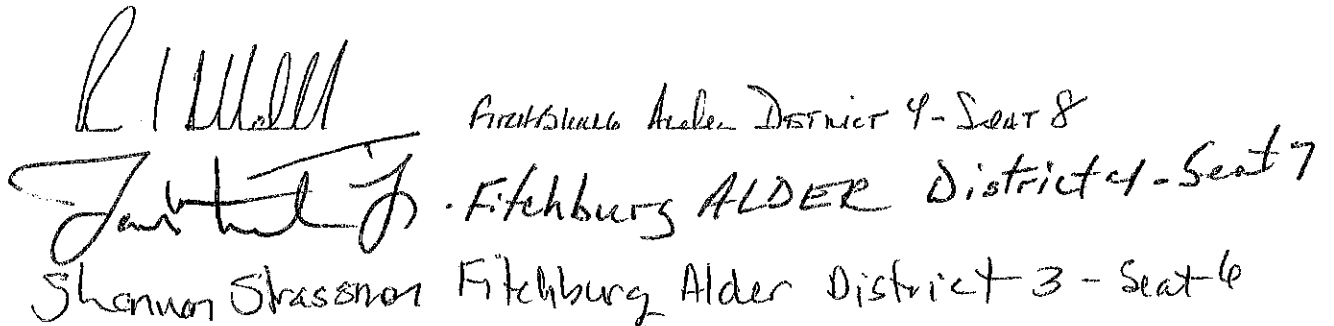 Fitchburg Alder District 4-Seat 8
Fitchburg ALDER District 4-Seat 7
Shannon Strassman Fitchburg Alder District 3-Seat 6